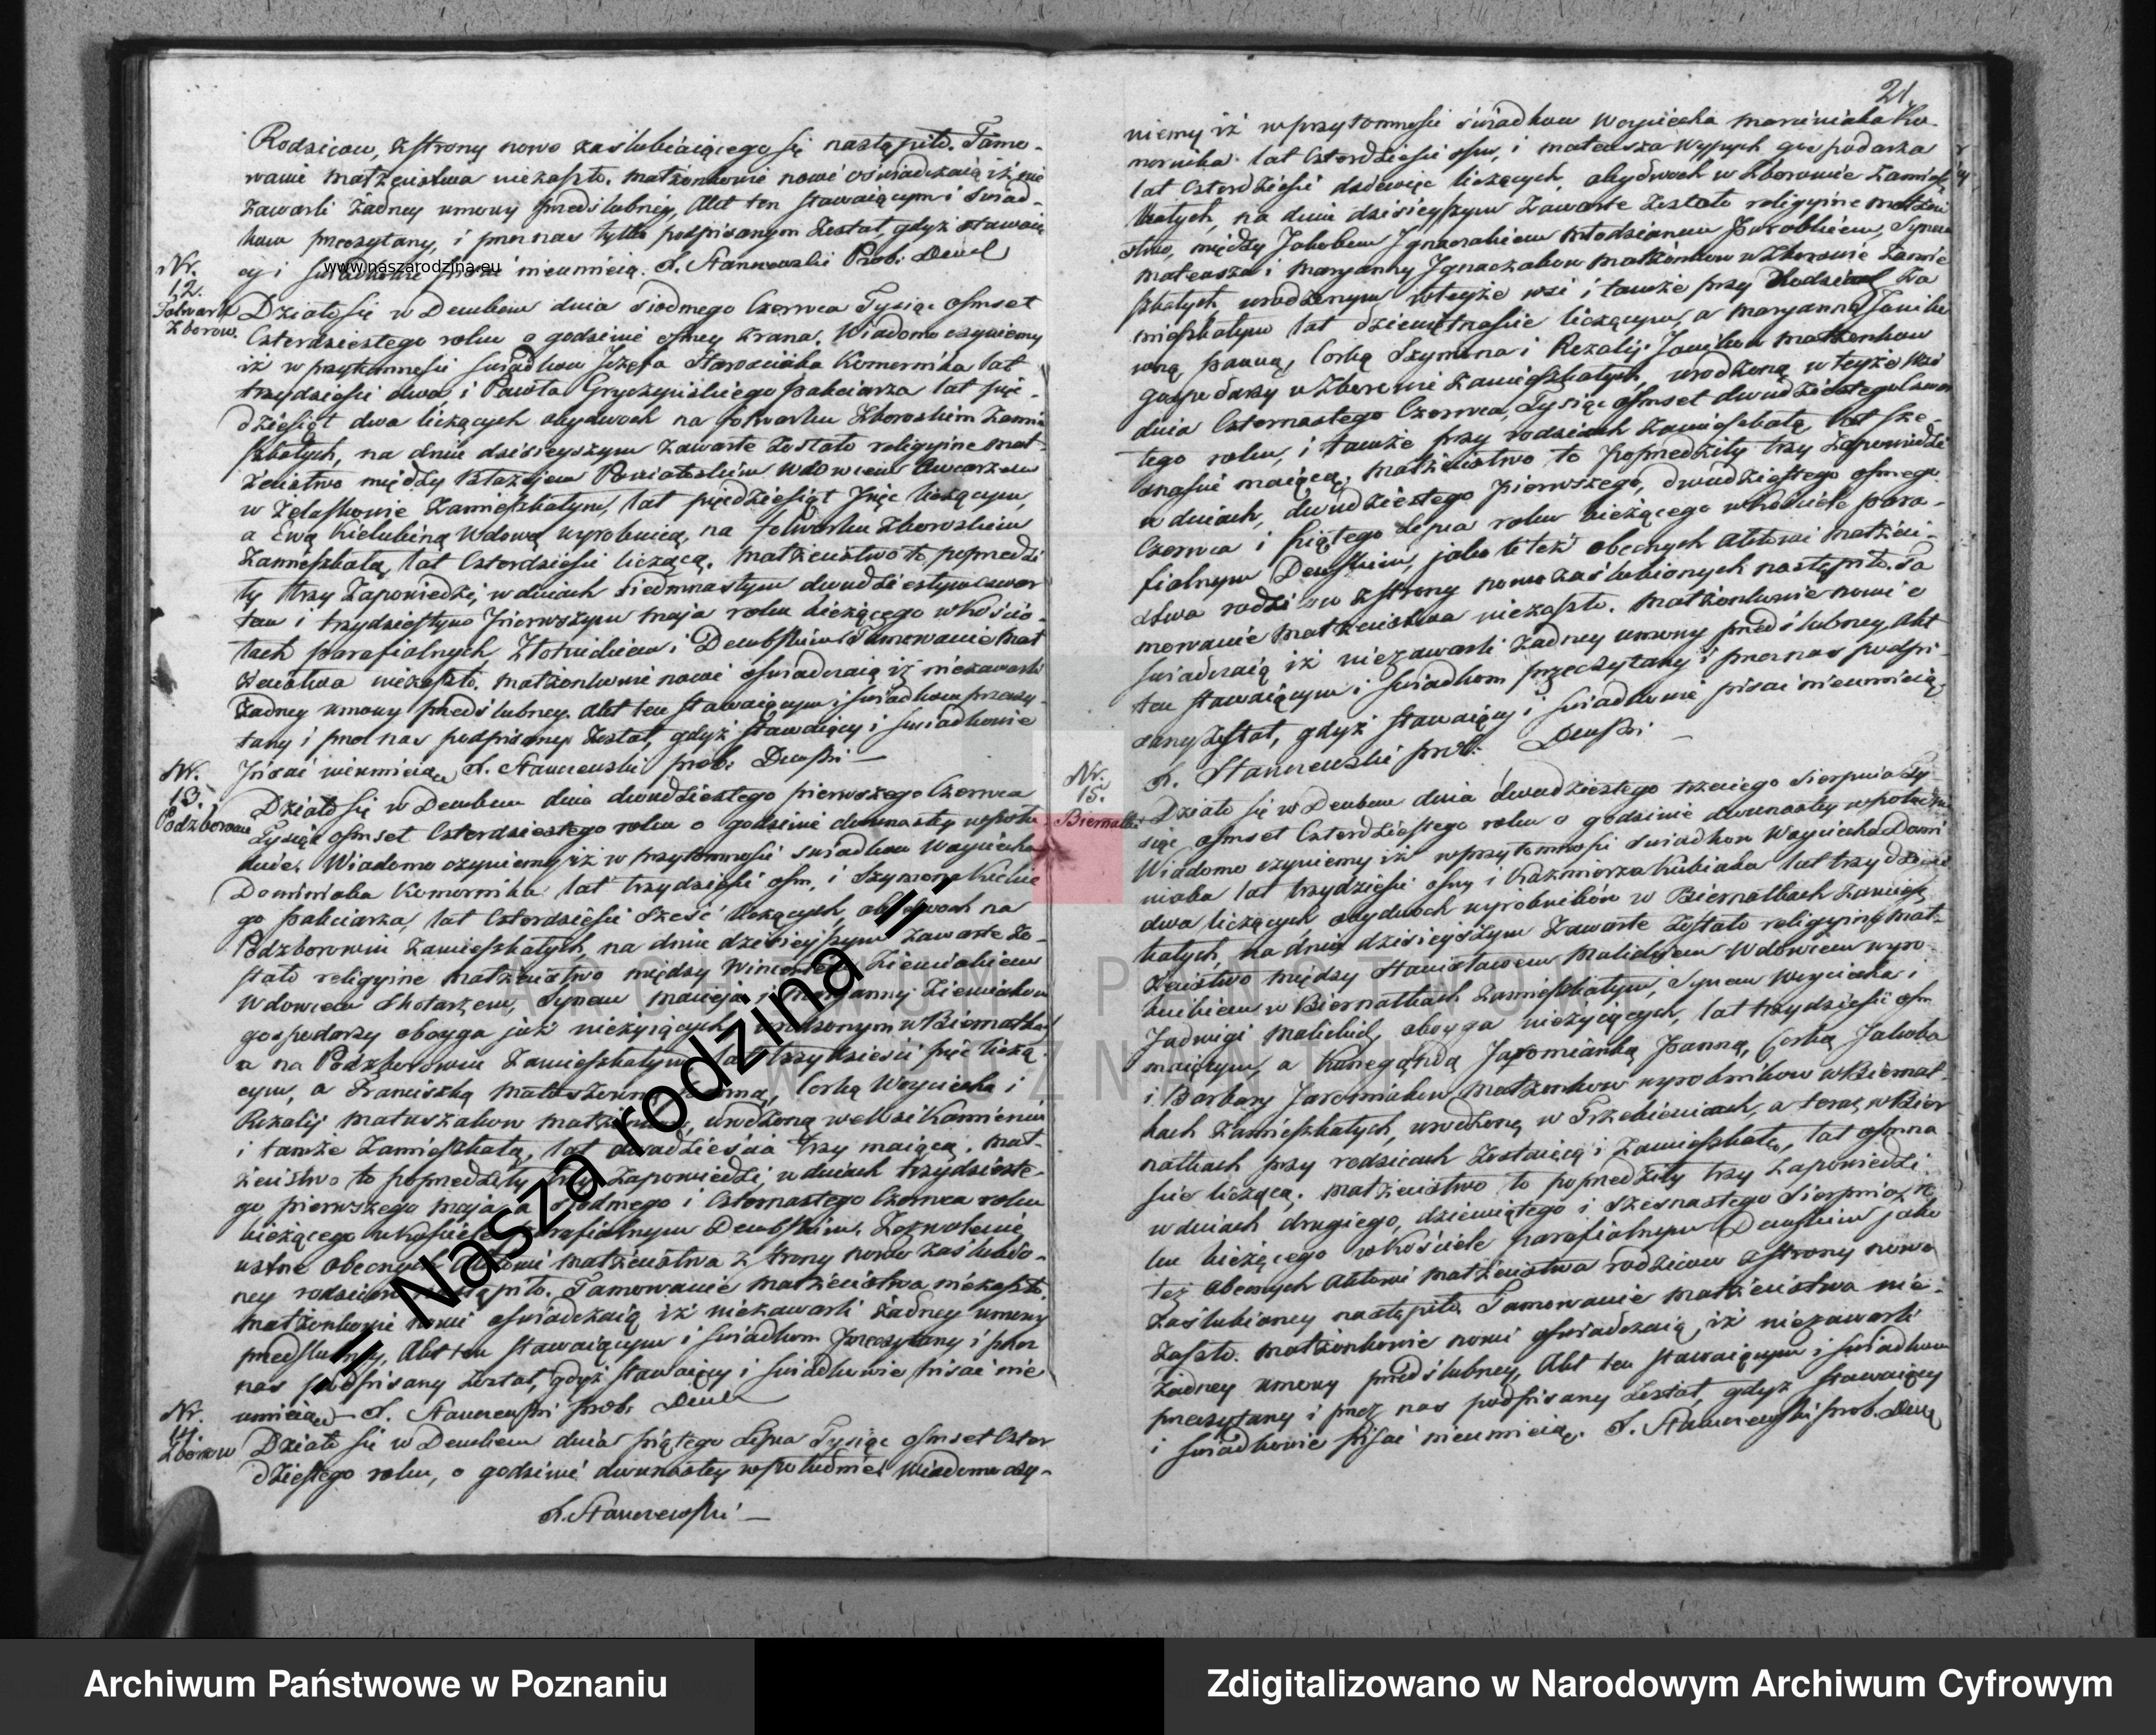 Rodzicow, z strony nowo zaslubiaiącego się nastąpiło. Tamo-
wanie małżeństwa niezaszło. Małżonkowie nowi oświadczaią iż nie
zawarli żadney umowy przedślubney, Akt ten stawaiącym i świad-
kom przeczytany, i przez nas tylko podpisanym został, gdyż stawaią
cy i świadkowie pisać nieumieią.
www.naszarodzina.eu
Nr.
12.
Folwark
Zborow.
Działo się w Dembem dnia siodmego Czerwca Tysiąc osmset
Czterdziestego roku o godzinie osmey zrana. Wiadomo czyniemy
iż w przytomności świadkow Jozefa Komornika lat
trzydzieści dwa, i Pawła Gryczyńskiego pakciarza lat pięć-
dziesiąt dwa liczących obydwoch na folwarku Zborowskim zamie
szkałych, na dniu dzisieyszym zawarte zostało religyine mał-
żeństwo między Błażejem Wdowcem Owczarzem
w Żelaskowie zamieszkałym, lat pięćdziesiąt pięć liczącym,
a Ewą Kiełubiną Wdową wyrobnicą, na folwarku Zborowskim
zamieszkałą, lat Czterdzieści liczącą. Małżeństwo to poprzedzi
ły trzy zapowiedzi, w dniach siedmnastym dwudziestym czwar
tem i trzydziestym pierwszym Maja roku bieżącego w Kościo-
łach parafialnych i Dembskim Tamowanie mał
żeństwa niezaszło. Małżonkowie nowi oświadczaią iż niezawarli
żadney umowy przedślubney. Akt ten stawaiącym i świadkom przeczy-
tany i przez nas podpisany został, gdyż stawaiący i świadkowie
pisać nieumieią
Nr.
13.
Podzborow
Działo się w Dembem dnia dwudziestego pierwszego Czerwca
Tysiąc osmset Czterdziestego roku o godzinie dwunastey wpołu
dnie. Wiadomo czyniemy iż w przytomności świadkow Woyciecha
Dominiaka Komornika lat trzydzieści osm, i Szymona
go pakciarza, lat Czterdzieści sześć liczących, obydwoch na
Podzborowiu zamieszkałych, na dniu dzisieyszym zawarte zo-
stało religyine małżeństwo między Wincentym Ziemiakiem
Wdowcem Synem Macieja i Maryanny Ziemiakow
gospodarzy oboyga już nieżyiących, urodzonym w Biernatkach
a na Podzborowiu zamieszkałym lat trzydzieści pięć liczą
cym, a Franciszką panną, Corką Woyciecha i
Rozalij Matuszakow małżonkow, urodzoną we wsi Kamieniu
i tamże zamieszkałą, lat dwadzieścia trzy maiącą. Mał-
żeństwo to poprzedziły trzy zapowiedzi, w dniach trzydzieste-
go pierwszego Maja, siodmego i Czternastego Czerwca roku
bieżącego w Kościele parafialnym Dembskim. Zezwolenie
ustne obecnych Aktowi małżeństwa z strony nowo zaślubio-
ney rodzicow nastąpiło. Tamowanie małżeństwa niezaszło.
Małżonkowie nowi oświadczaią iż niezawarli żadney umowy
przedślubney, Akt ten stawaiącym i świadkom przeczytany i przez
nas podpisany został, gdyż stawaiący i świadkowie pisać nie
umieią
Nr.
14.
Zborow
Działo się w Dembem dnia piątego Lipca Tysiąc osmset Czter
dziestego roku, o godzinie dwunastey wpołudnie. Wiadomo czy-
21.
niemy iż w przytomności świadkow Woyciecha Marciniaka Ko-
mornika lat Czterdzieści osm, i Mateusza Wypych gospodarza
lat Czterdzieści dziewięć liczących, obydwoch w Zborowie zamiesz
kałych, na dniu dzisieyszym zawarte zostało religyine małżeń
stwo, między Jakobem Ignaczakiem Młodzianem Parobkiem, Synem
Mateusza i Maryanny Ignaczakow małżonkow w Zborowie zamie
szkałych urodzonym wteyże wsi i tamże przy Rodzicach za
mieszkałym lat dziewiętnaście liczącym, a Maryanną Janiko
wną, panną, Corką Szymona i Rozalij Janikow małżonkow
gospodarzy w Zborowie zamieszkałych, urodzoną w teyże wsi
dnia Czternastego Czerwca, Tysiąc osmset dwudziestego czwar
tego roku, i tamże przy rodzicach zamieszkałą lat szes-
naście maiącą. Małżeństwo to poprzedziły trzy zapowiedzi
w dniach, dwudziestego pierwszego, dwudziestego osmego
Czerwca i piątego Lipca roku bieżącego w Kościele para-
fialnym Dembskim, jako to też obecnych Aktowi małżeń-
stwa rodzicow z strony nowo zaślubionych nastąpiło. Ta
mowanie małżeństwa niezaszło. Małżonkowie nowi o
świadczaią iż niezawarli żadney umowy przedślubney, Akt
ten stawaiącym i świadkom przeczytany i przez nas podpi-
sany został, gdyż stawaiący i świadkowie pisać nieumieią.
Nr.
15.
Biernatki
Działo się w Dembem dnia dwudziestego trzeciego Sierpnia Ty-
siąc osmset Czterdziestego roku o godzinie dwunastey wpołudnie
Wiadomo czyniemy iż w przytomności świadkow Woyciecha Domi
niaka lat trzydzieści osmy i Kazmierza Kubiaka lat trzydzieści
dwa liczących obydwoch wyrobników w Biernatkach zamiesz
kałych, na dniu dzisieyszym zawarte zostało religyine mał-
żeństwo między Stanisławem Malickim Wdowcem wyro-
bnikiem w Biernatkach zamieszkałym, Synem Woyciecha i
Jadwigi Malickich oboyga nieżyiących, lat trzydzieści osm
maiącym, a Kunegundą panną, Corką Jakoba
i Barbary małżonkow wyrobnikow w Biernat-
kach zamieszkałych, urodzoną w Trzebieniach, a teraz w Bier
natkach przy rodzicach zostaiącą i zamieszkałą, lat osmna
ście liczącą. Małżeństwo to poprzedziły trzy zapowiedzi
w dniach drugiego, dziewiątego i szesnastego Sierpnia ro
ku bieżącego w Kościele parafialnym Dembskim jako
też obecnych Aktowi małżeństwa rodzicow z strony nowo
zaślubioney nastąpiło. Tamowanie małżeństwa nie-
zaszło. Małżonkowie nowi oświadczaią, iż niezawarli
żadney umowy przedślubney, Akt ten stawaiącym i świadkom
przeczytany i przez nas podpisany został, gdyż stawaiący
i świadkowie pisać nieumieią.
..:: Nasza rodzina ::..
ARCHIWUM PAŃSTWOWE
W POZNANIU
Archiwum Państwowe w Poznaniu
Zdigitalizowano w Narodowym Archiwum Cyfrowym